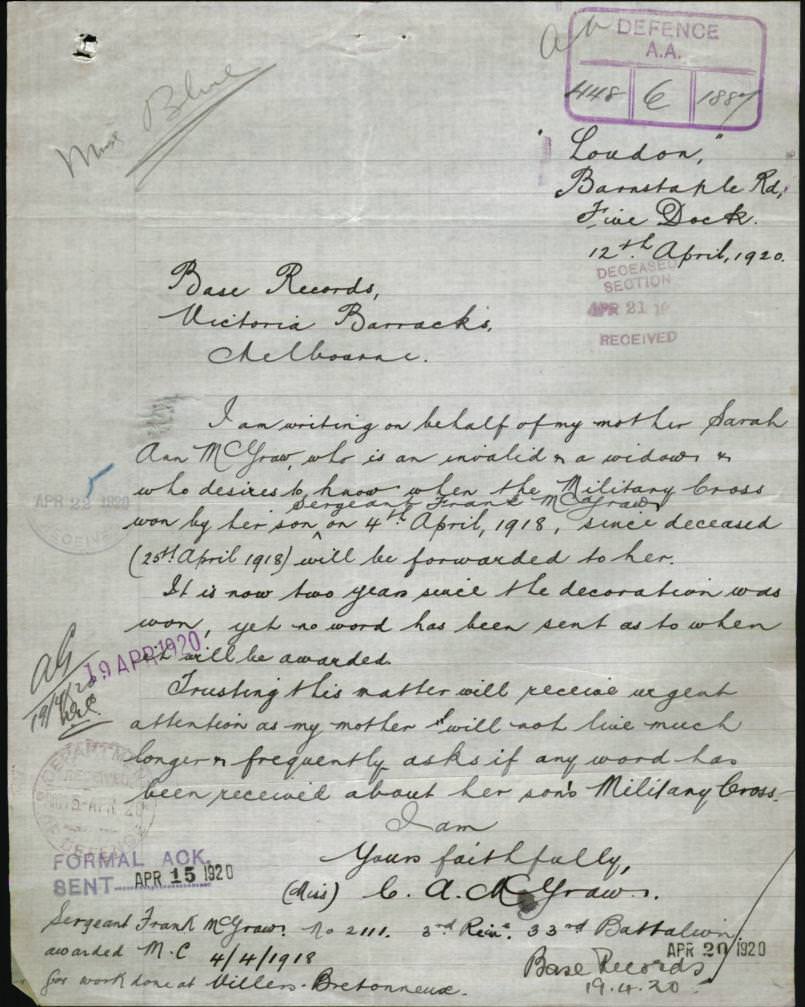 DEFENCE
A.A.
448 6 1887
Blue
"Loudon,"
Barnstaple Rd,
Five Dock.
12th April, 1920.
DECEASED
SECTION
APR 21 19
RECEIVED
Base Records,
Victoria Barracks,
Melbourne.
I am writing on behalf of my mother Sarah
Ann McGraw, who is an invalid & a widow &
who desires to know when the Military Cross
won by her son Sergeant Frank McGraw on 4th April, 1918, since deceased
(25th April 1918) will be forwarded to her.
It is now two years since the decoration was
won, yet no word has been sent as to when
it will be awarded.
Trusting this matter will receive urgent
attention as my mother will not live much
longer & frequently asks if any word has
been received about her son's Military Cross.
I am
Yours faithfully,
(Miss) C. A. McGraw.
APR 22 1920
5
19 APR 1920
DEPARTMENT
RECEIVED
APR 20
OF DEFENCE
FORMAL ACK.
SENT APR 15 1920
Sergeant Frank McGraw. No 2111. 3rd Rein. 33rd Battalion
awarded M.C 4/4/1918
for work done at Villers-Bretonneux.
APR 20 1920
Base Records
19.4.20.